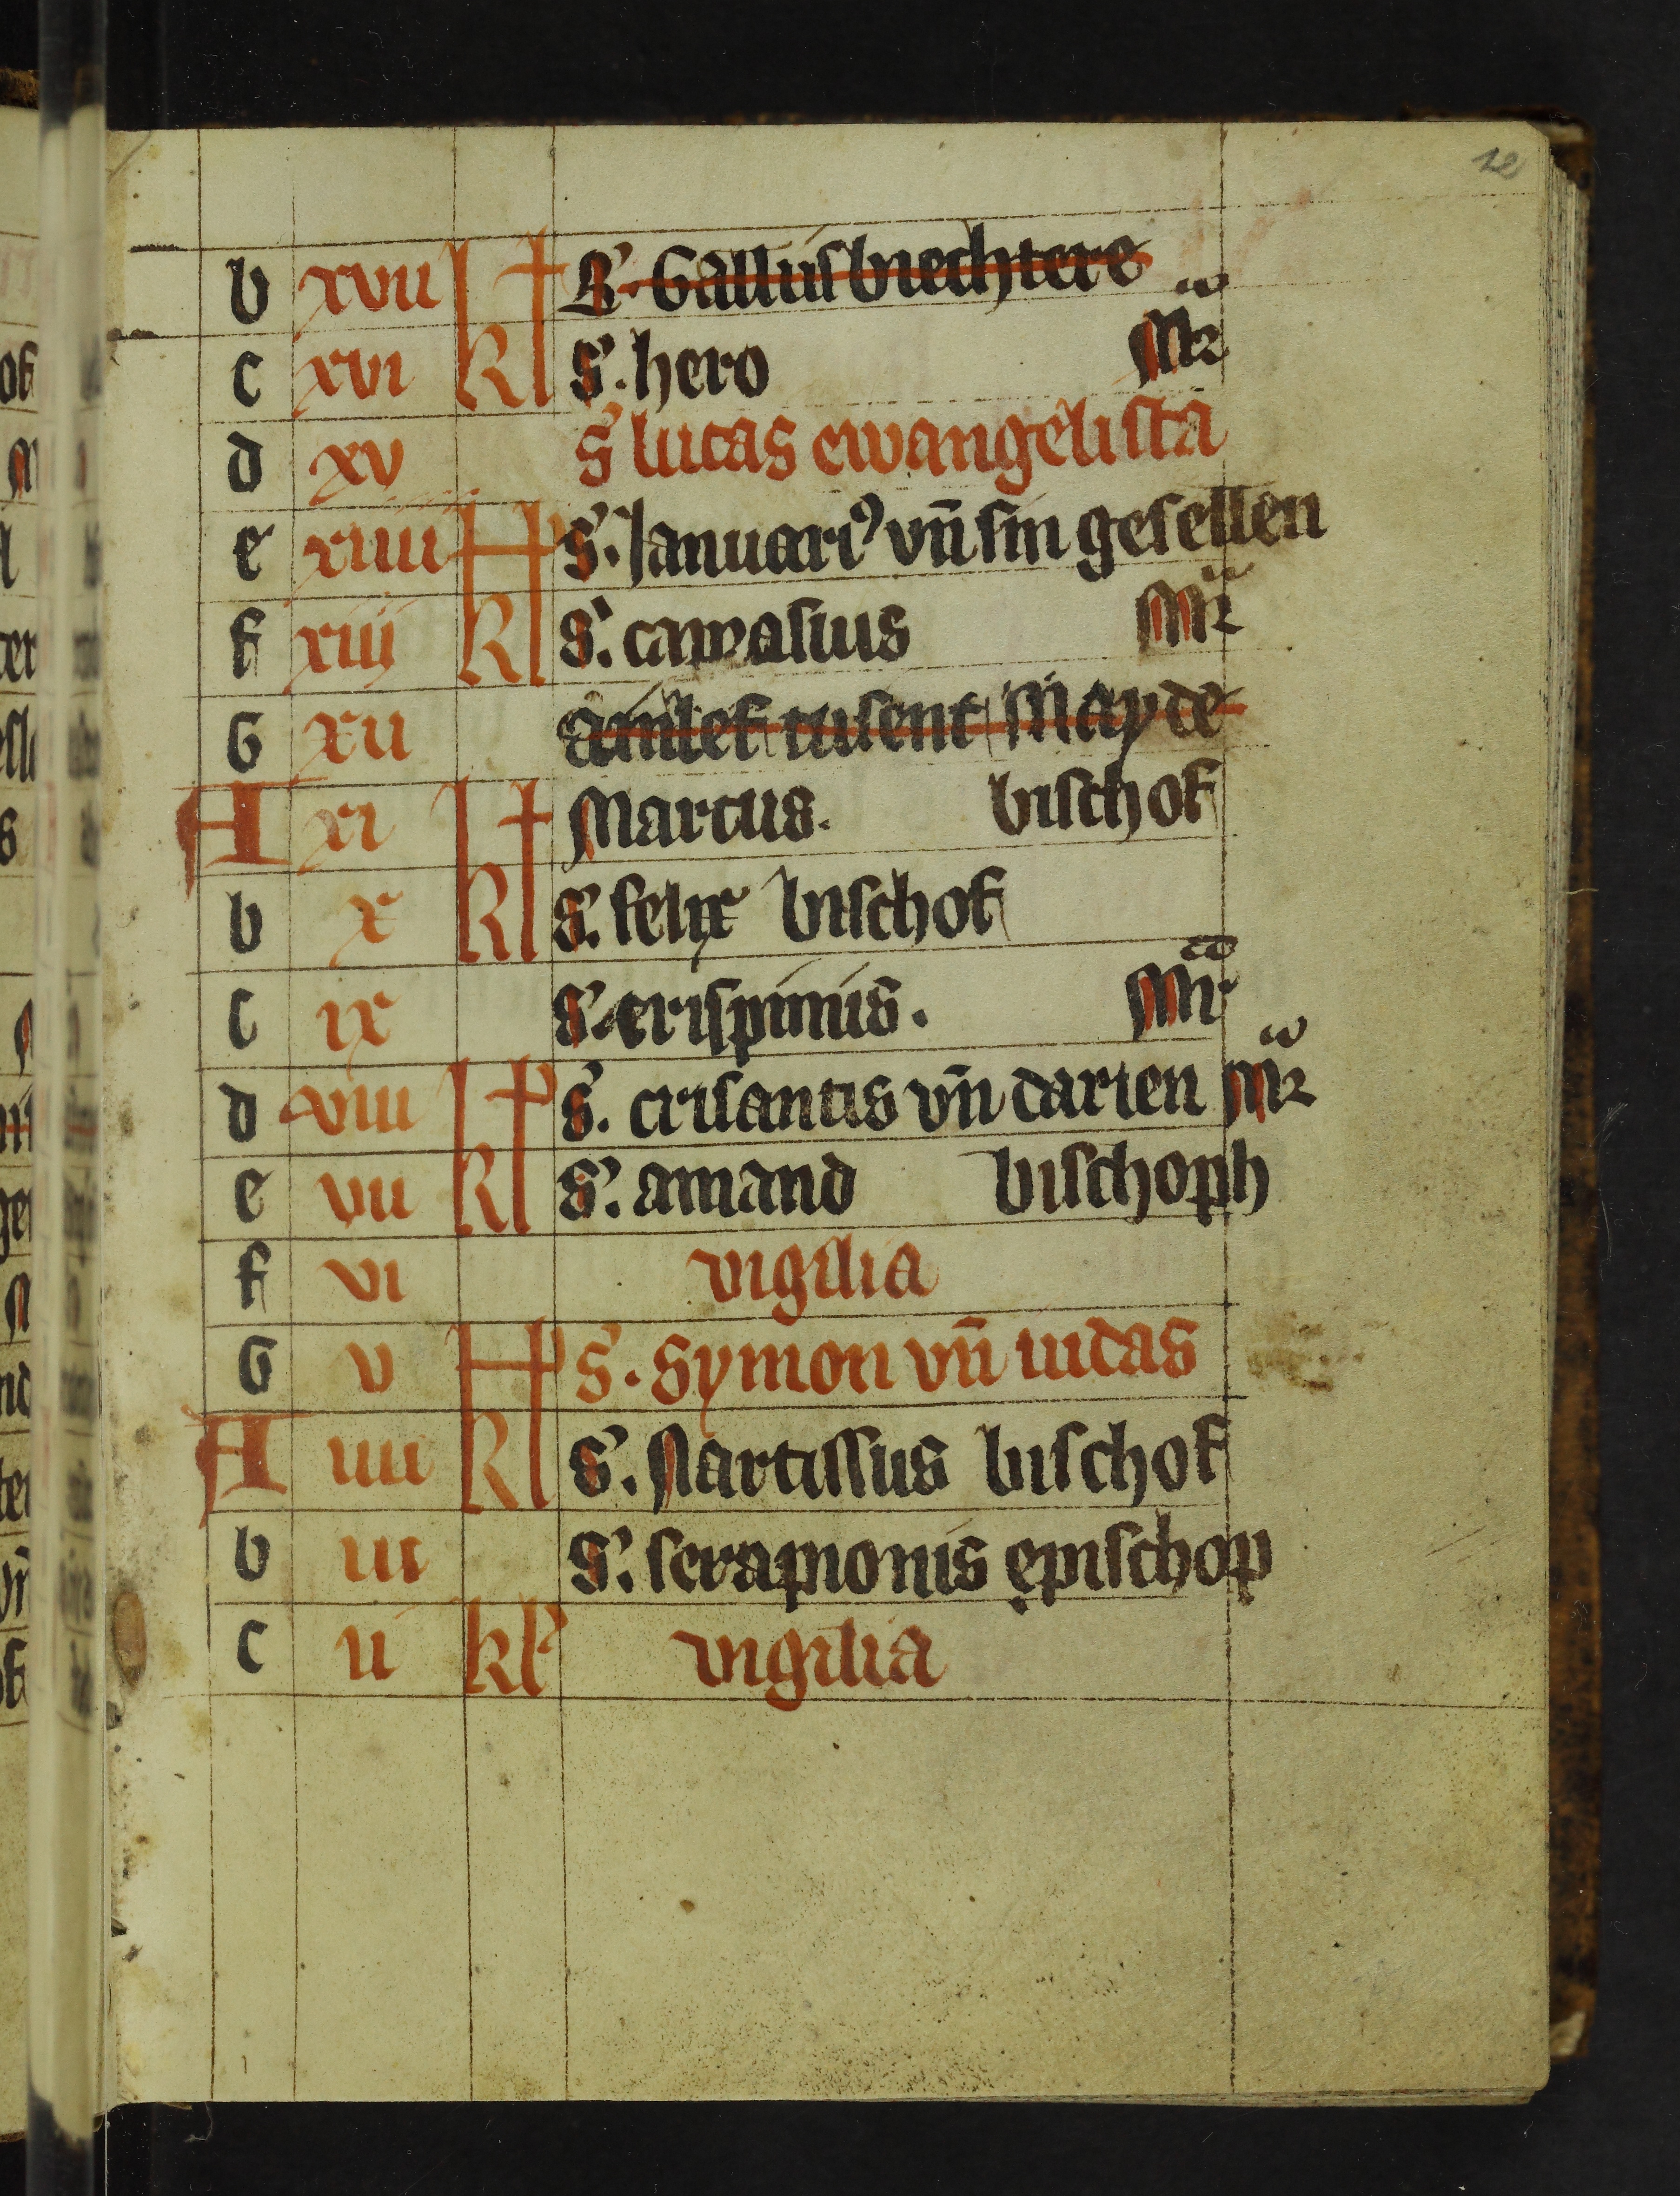 12
b xvii kl S. Gallus biechtere
c xvi kl S. hero Mr
d xv S lucas ewangelista
e xiiii kl S. Januari⁹ vn̄ sin gesellen
f xiij kl S. capvasius Mr
G xii Ainlef tusent Mayde
A xi kl Marcus. bischof
b x kl S. felix bischof
c ix S. crispinus. Mr
d viii kl S. crisantis vn̄ darien Mr
e vii kl S. amand bischoph
f vi vigilia
G v kl S. Symon vn̄ iudas
A iiii kl S. Nartissus bischof
b iii S. serapionis epischop
c ii kl vigilia